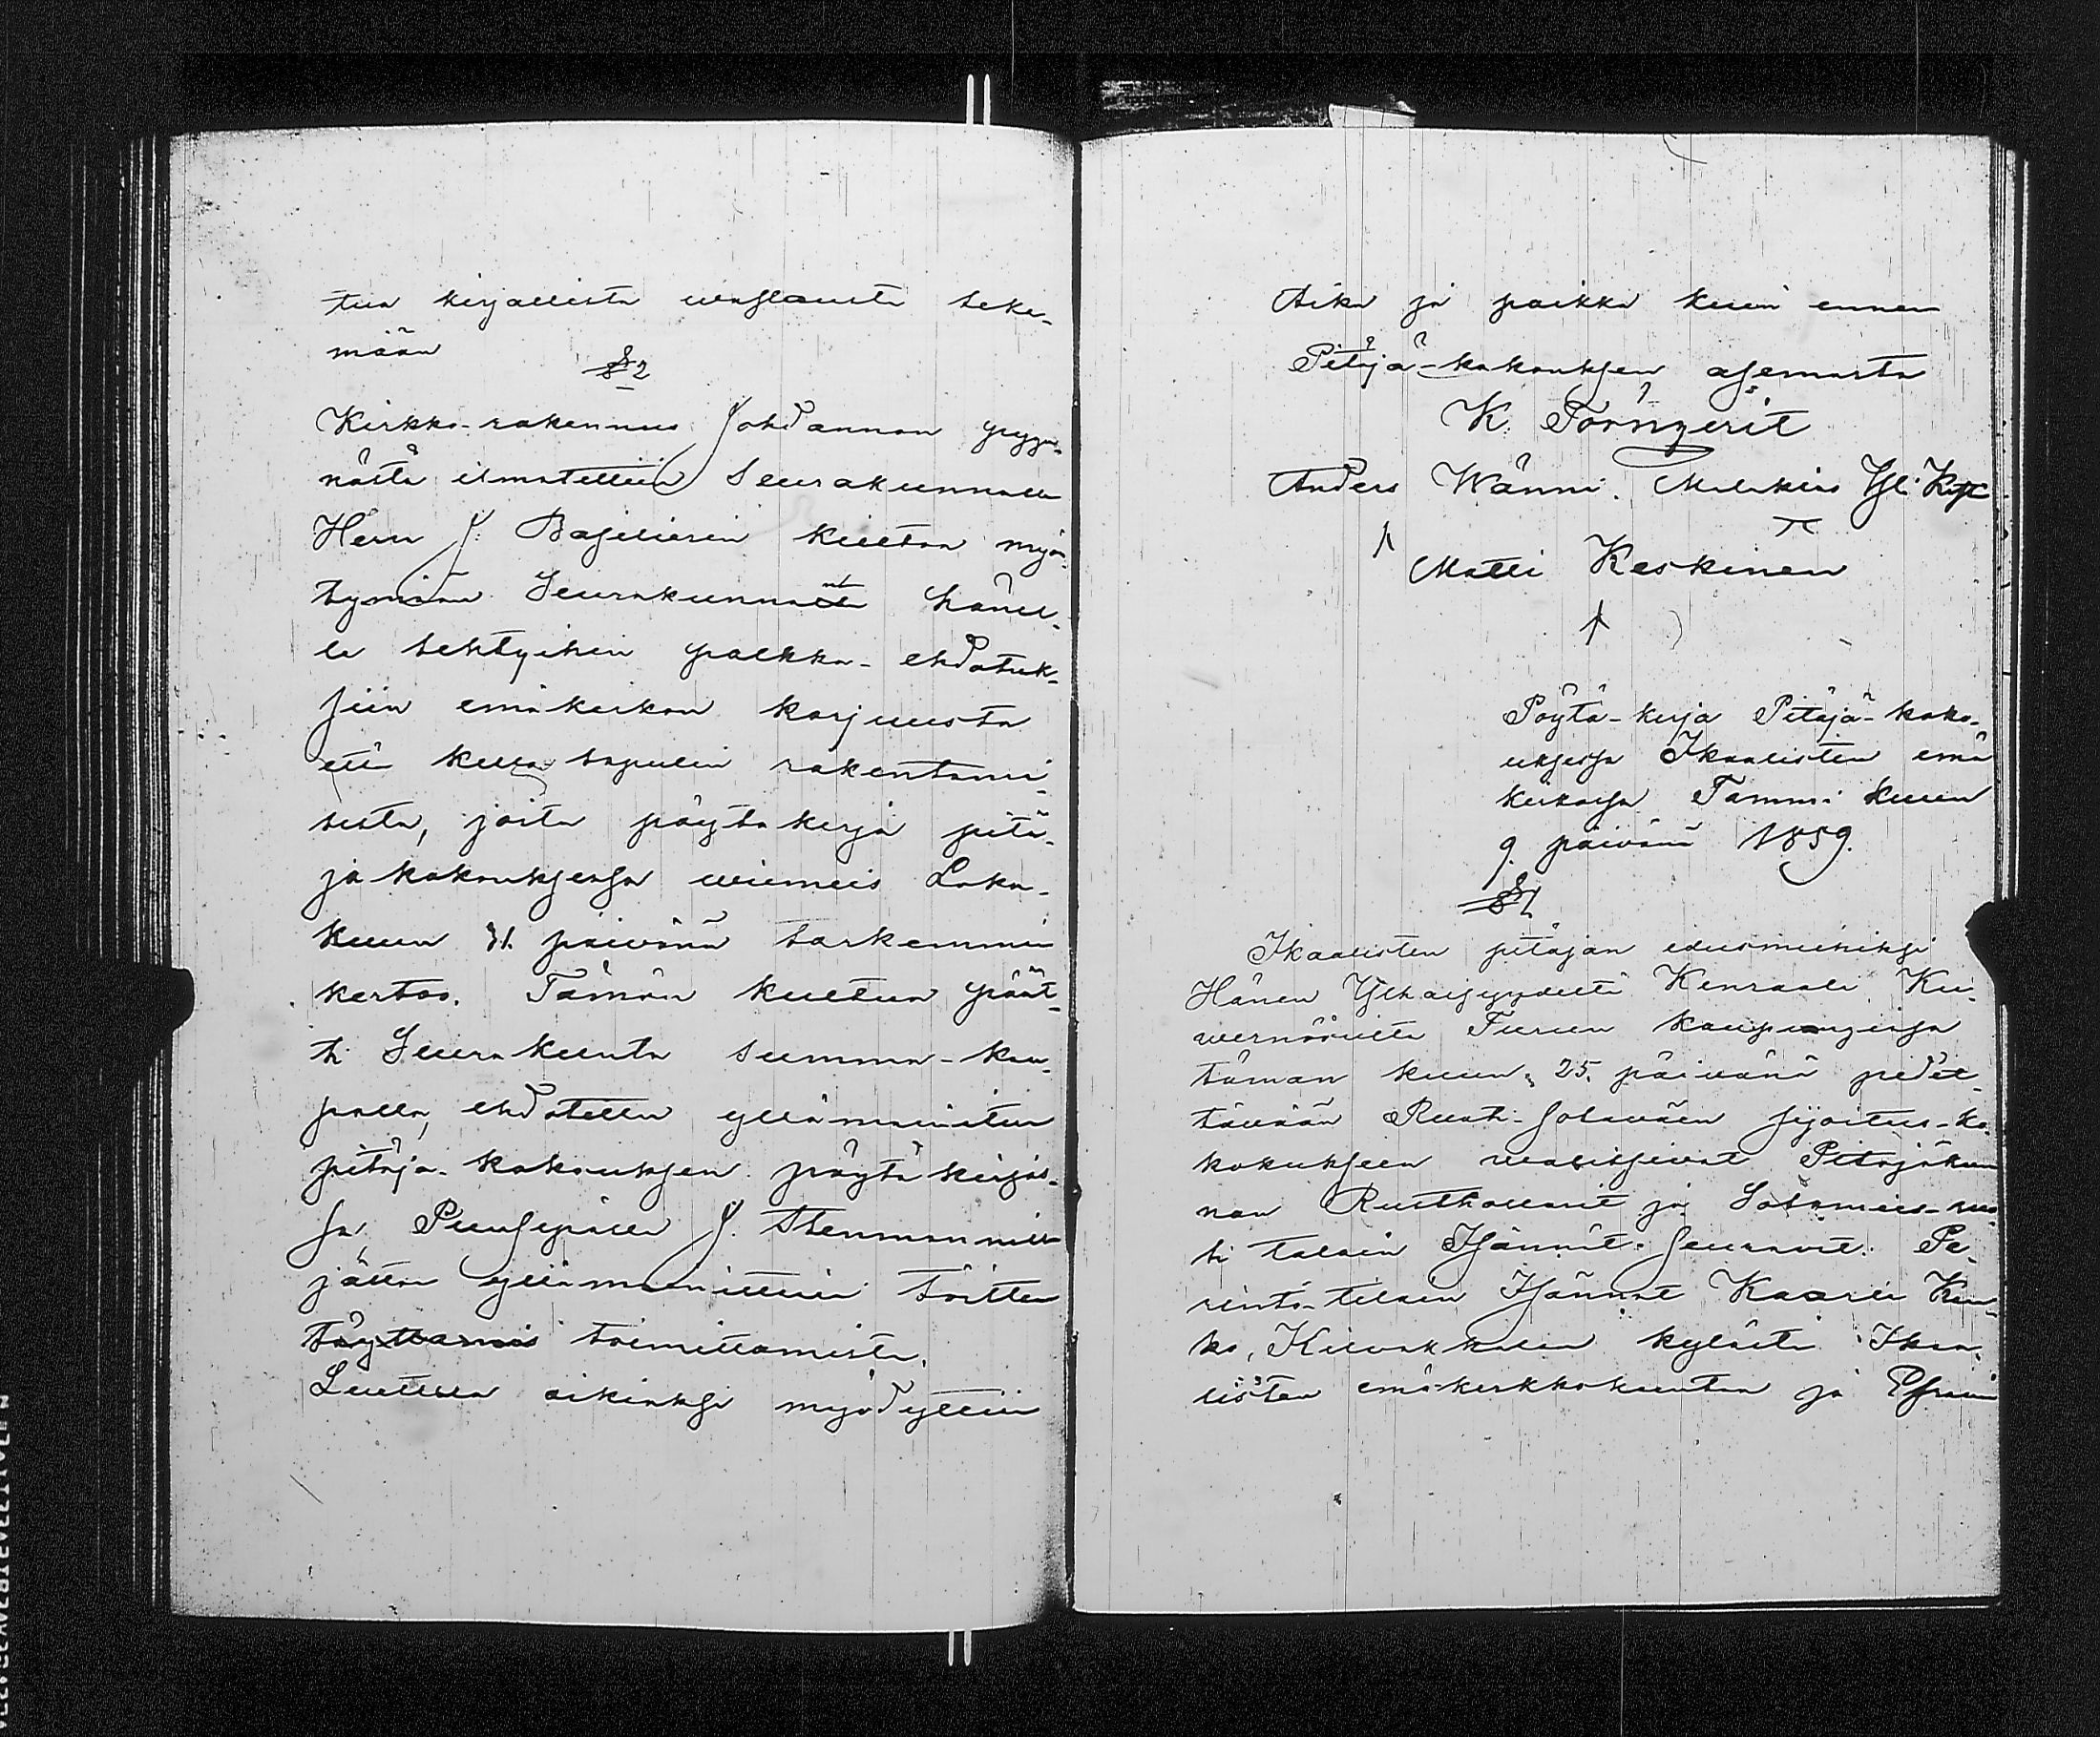 tun kirjallista waslausta teke-
mään
§ 2
Kirkko-rakennus Johdannon pyyn-
nöstä ilmoitettiin Seurakunnalle
Herr J. Basilierin kielton myön-
tymään Seurakunnalta hänel-
le tehtyihin palkka-ehdotuk-
siin emäkirkon korjuusta
eli kello tapulin rakentami-
sesta, joita pöytäkirja pitä-
jä kokouksessa wiimeis Loka-
kuun 31. päivänä tarkemmin
kertoo. Tämän kuultua päät-
ti Seurakunta summa-kau-
palla, ehdotettu yllämainitun
pitäjä-kokouksen pöytäkirjas-
sa Puusepälle J. Stenmannille
jättää yllämainittuin töitten
täyttämis toimittamista.
Luettua oikiaksi myödyttiin
Aika ja paikka kuin ennen
Pitäjä-kokouksen asemasta
K. Törnqvist
Anders Wänni. Malakias Yli Kyt
Matti Keskinen
Pöytä-kirja Pitäjä-koko-
uksessa Ikaalisten emä
kirkossa Tammi kuun
9. päivänä 1859.
§ 1
Ikaalisten pitäjän edusmiehiksi
Hänen Ylhäisyydeltä Kenraali Ku-
wernööriltä Turun kaupungissa
tämän kuun 25. päivänä pidet-
täwään Ruoti-Sotawäen sijoitus-ko-
koukseen walitsivat Pitäjäkun
nan Rusthollarit ja Sotamies-ruo
ti taloin Isännät seuravat: Pe-
rintö-tilain Isännät Kaarle
ko, Kilvakkalan kylästä Ikaa-
listen emäkirkkokuntaa ja Efraim